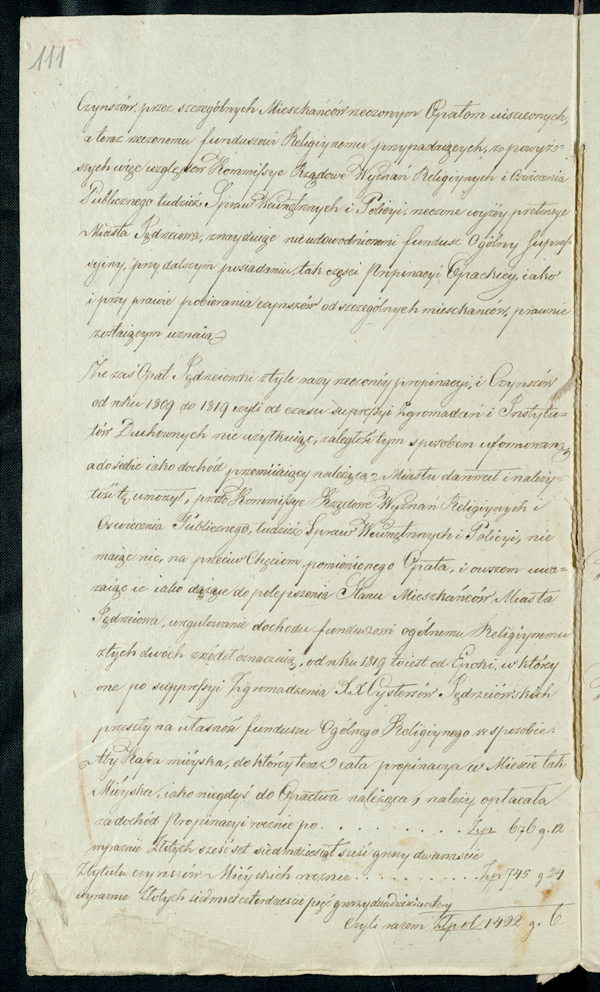 111
Czynszów, przez szczególnych Mieszkańców rzeczonym Opatom uiszczonych,
a teraz rzeczonemu funduszowi Religiynemu przypadaiących, z powyż-
szych więc względów Kommissye Rządowe Wyznań Religiynych i Oświecenia
Publicznego tudzież Spraw Wewnętrznych i Policyi, rzeczone wyżéy pretensye
Miasta Jędrzeiowa, znayduiąc nieudowodnionemi fundusz Ogólny Supres-
syiny, przy dalszym posiadaniu, tak części Propinacyi Opackiey, iako
i przy prawie pobierania czynszów od szczególnych mieszkańców, prawnie
zostaiącym uznaią.
Że zaś Opat Jędrzeiowski z tyle razy rzeczonéy propinacyi, i Czynszów
od roku 1809 do 1819 czyli od czasu supressyi Zgromadzeń i Instytu-
tów Duchownych nie użytkuiąc, zaległość tym sposobem uformowaną
a do siebie iako dochód przemiiaiący należącą, Miastu darował i należy-
tość tę umorzył, przeto Kommissye Rządowe Wyznań Religiynych i
Oświecenia Publicznego, tudzież Spraw Wewnętrznych i Policyi, nie
maiąc nic, na przeciw Chęciom pomienionego Opata, i owszem uwa-
żaiąc ie iako dążące do polepszenia Stanu Mieszkańców Miasta
Jędrzeiowa, uregulowanie dochodu funduszowi ogólnemu Religiynemu
z tych dwóch źródeł oznaczaią, od roku 1819 to iest od Epoki, w któréy
one po suppressyi Zgromadzenia XX Cystersów Jędrzeiówskich
przeszły na własność funduszu Ogólnego Religiynego w sposobie:
Aby Kassa mieyska, do któréy teraz cała propinacya w Mieście tak
Mieyska, iako niegdyś do Opactwa należąca, należy, opłacała
za dochód Propinacyi rocznie po . . . . . . . . . . Złp 676 g. 12
wyraźnie Złotych sześćset siedmdziesiąt sześć groszy dwanaście
Z tytułu czynszów Mieyskich rocznie . . . . . . . . . . Złp 745 g 24
wyraźnie Złotych siedmset czterdzieści pięć groszy dwadzieścia cztery
Czyli razem Złpol 1422 g. 6.